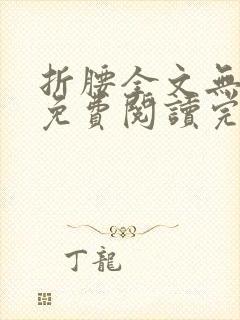 折腰全文無
免費閱讀完
丁龍